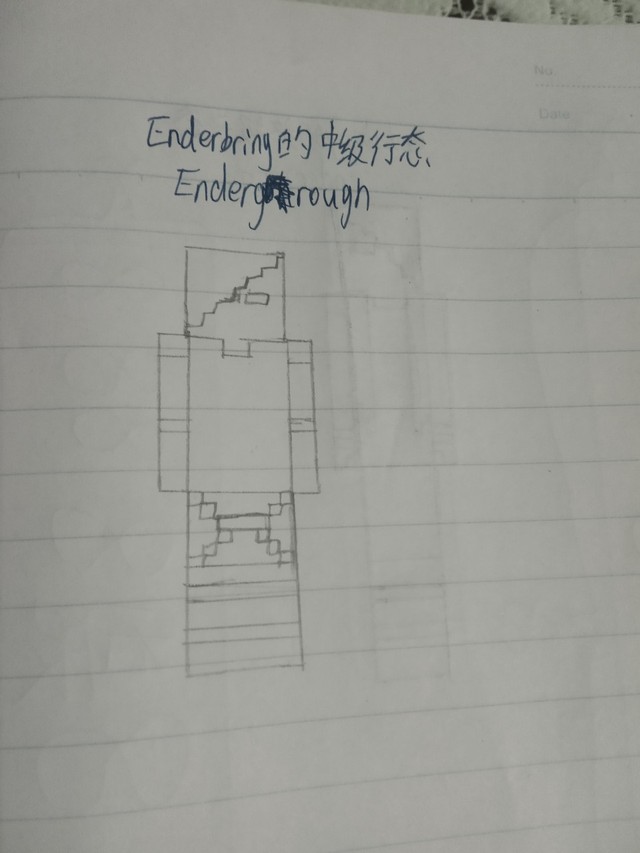 No.
Date
Enderbring的中级行态
Endergrough